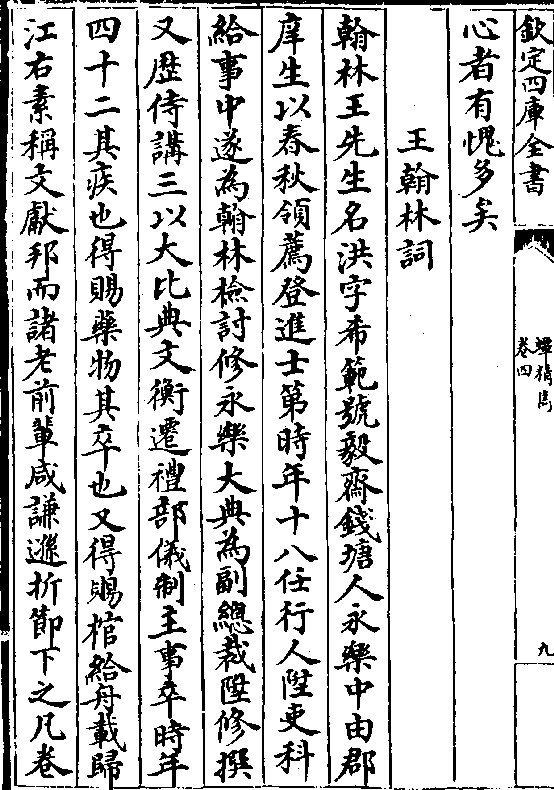 欽定四庫全書
蟫精雋
卷四
九
心者有愧多矣
王翰林詞
翰林王先生名洪字希範號毅齋錢塘人永樂中由郡
庠生以春秋領薦登進士第時年十八任行人陞吏科
給事中遂為翰林檢討修永樂大典為副總裁陞修撰
又歷侍講三以大比典文衡遷禮部儀制主事卒時年
四十二其疾也得賜藥物其卒也又得賜棺給舟載歸
江右素稱文獻邦而諸老前輩咸謙遜折節下之凡卷